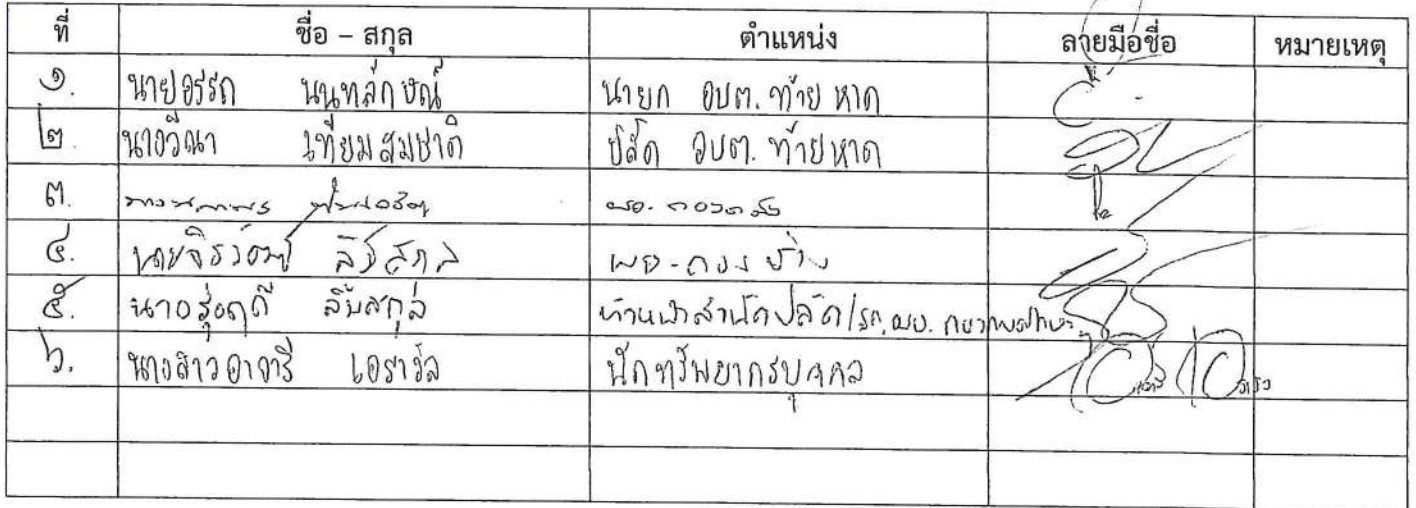 ที่ ชื่อ – สกุล ตำแหน่ง ลายมือชื่อ หมายเหตุ
๑. นายอรรถ นนทลักษณ์ นายก อบต. ท้ายหาด
๒ นางวีณา เทียมสมชาติ ปลัด อบต. ท้ายหาด
๓. ผอ. กองคลัง
๔. นายจิรวัฒน์ ลิ้มสกุล ผอ. กองช่าง
๕. นางรุ่งฤดี ลิ้มสกุล หัวหน้าสำนักปลัด/รก. ผอ. กองการศึกษาฯ
๖. นางสาวอาจารี เอราวัล นักทรัพยากรบุคคล